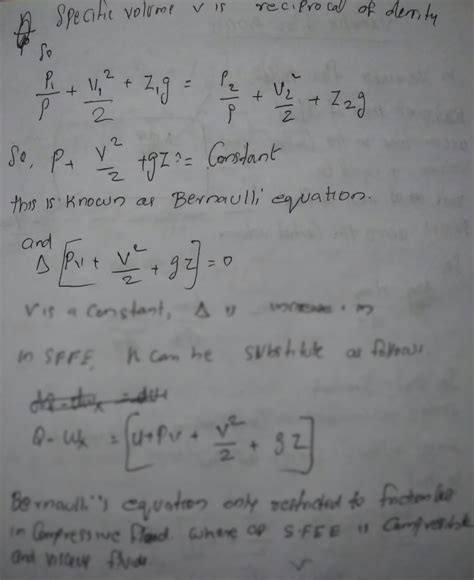 Specific volume v is reciprocal of density
So
P₁/ρ + V₁²/2 + Z₁g = P₂/ρ + V₂²/2 + Z₂g
So, P + V²/2 + gZ = Constant
this is known as Bernaulli equation.
and
Δ [Pv + V²/2 + gZ] = 0
V is a constant, Δ is increase in
in SFFE, h can be substitute as follows
Q - Wx = [u+Pv + V²/2 + gZ]
Bernaulli's equation only restricted to
in compressive fluid. where as S.F.E.E is
and fluids